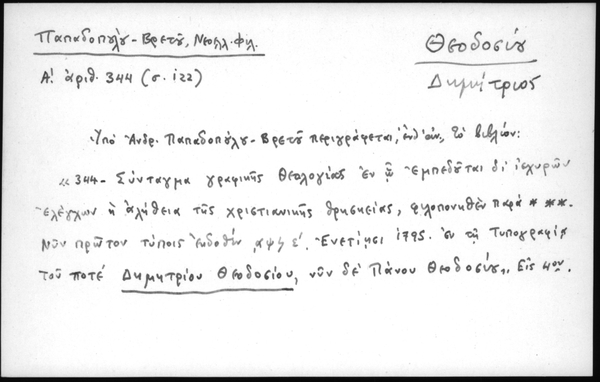 Παπαδοπούλου-Βρετοῦ, Νεοελλ. Φιλ.
Α! ἀριθ. 344 (σ. 122)
Θεοδοσίου
Δημήτριος
Ὑπὸ Ἀνδρ. Παπαδοπούλου-Βρετοῦ περιγράφεται, τὸ βιβλίον:
«344- Σύνταγμα γραφικῆς Θεολογίας ἐν ᾧ ἐμπεδοῦται δι' ἰσχυρῶν
ἐλέγχων ἡ ἀλήθεια τῆς χριστιανικῆς θρησκείας, φιλοπονηθὲν παρὰ * * *.
Νῦν πρῶτον τύποις ἐκδοθέν, αψϟε΄. Ἐνετίῃσι 1795. ἐν τῇ Τυπογραφίᾳ
τοῦ ποτὲ Δημητρίου Θεοδοσίου, νῦν δὲ Πάνου Θεοδοσίου, Εἰς 4ον.